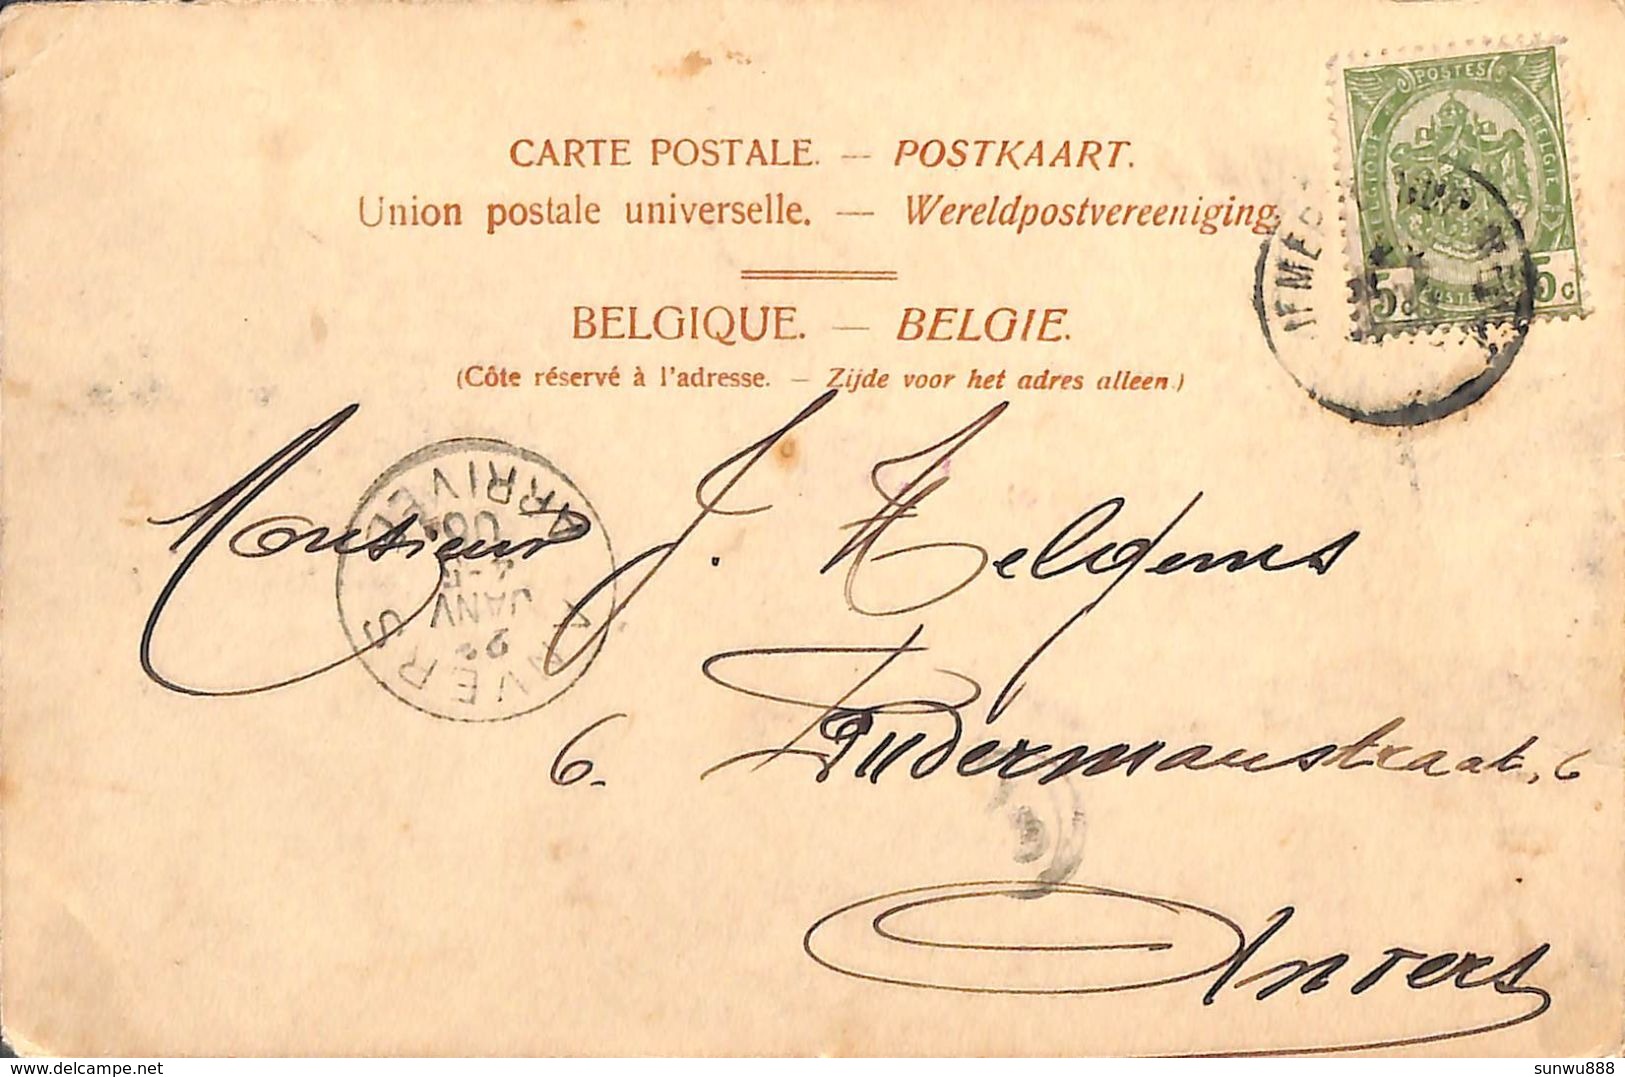 CARTE POSTALE. — POSTKAART.
Union postale universelle. — Wereldpostvereeniging.
BELGIQUE. — BELGIE.
(Côte réservé à l'adresse. — Zijde voor het adres alleen.)
POSTES
BELGIQUE BELGIË
5 C 5 C
POSTE
ANVERS
22
JANV
ARRIVÉE
Monsieur J. Helgems
6. Ruidermanstraat, 6
Anvers
delcampe.net
sunwu888